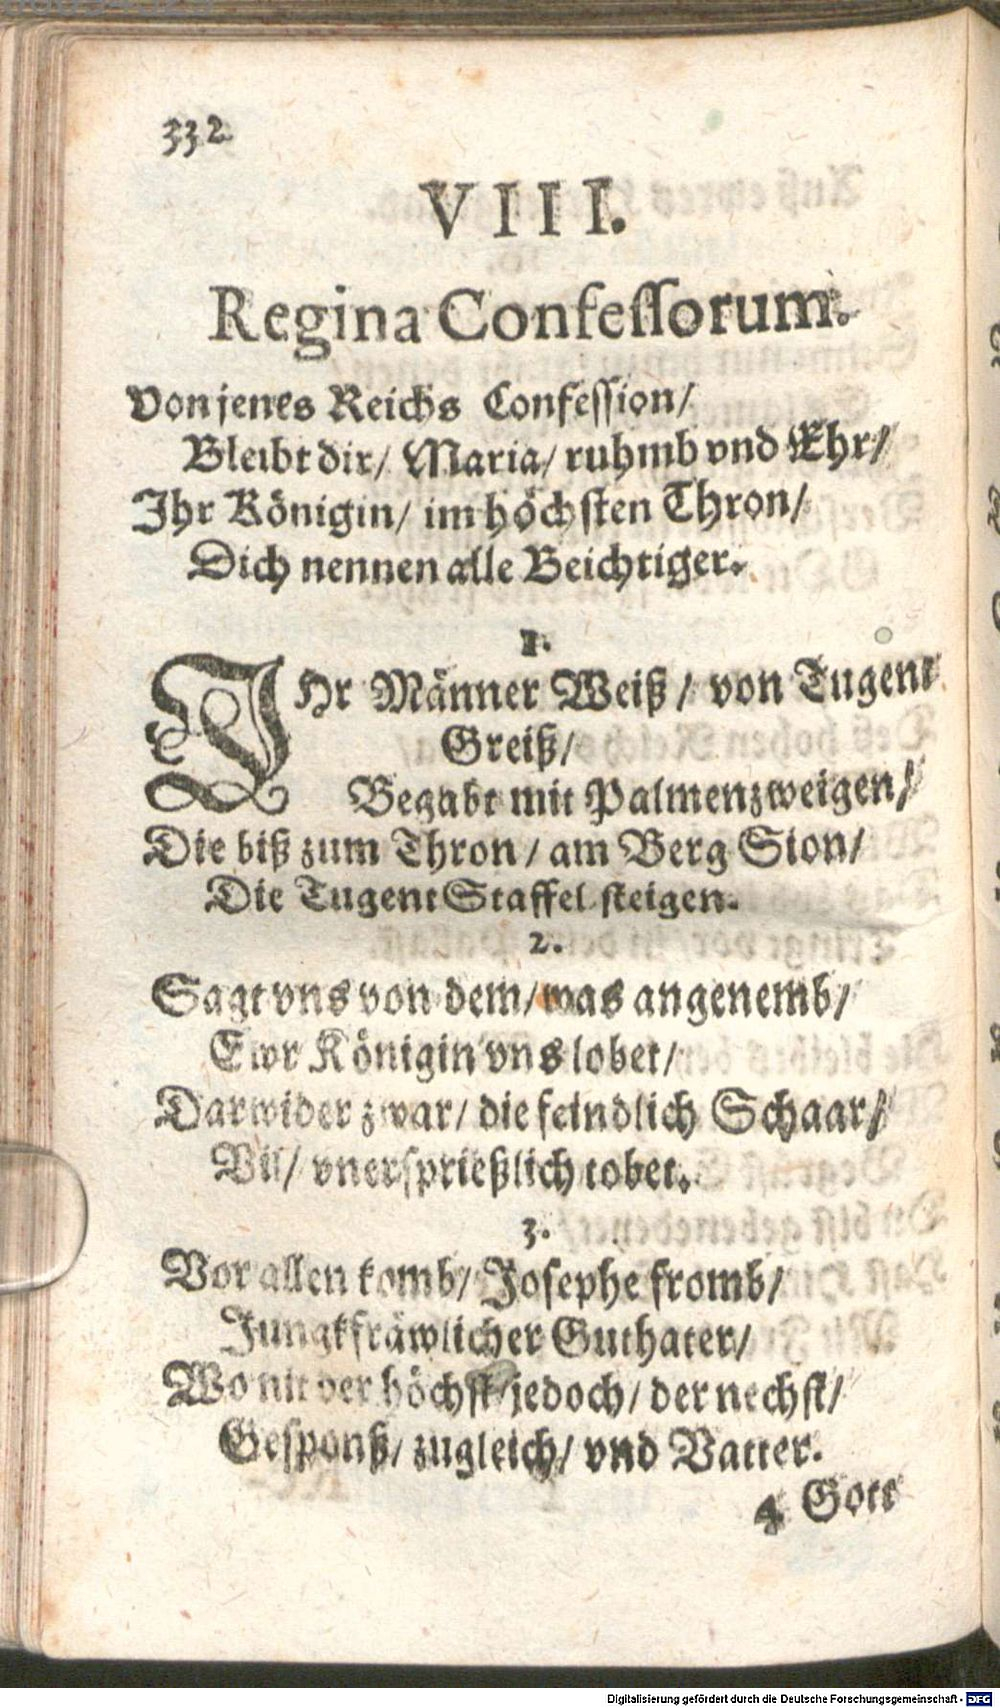 332
VIII.
Regina Confessorum.
Von jenes Reichs Confession/
Bleibt dir/ Maria/ ruhmb vnd Ehr/
Ihr Königin/ im höchsten Thron/
Dich nennen alle Beichtiger.
1.
IHr Männer Weiß / von Tugent
Greiß/
Begabt mit Palmenzweigen/
Die biß zum Thron / am Berg Sion/
Die Tugent Staffel steigen.
2.
Sagt vns von dem/ was angenemb/
Ewr Königin vns lobet/
Darwider zwar/ die feindlich Schaar/
Vil/ vnersprießlich tobet.
3.
Vor allen komb/ Josephe fromb/
Jungkfräwlicher Guthater/
Wo nit der höchst/ jedoch/ der nechst/
Gesponß/ zugleich/ vnd Vatter.
4 Gott
Digitalisierung gefördert durch die Deutsche Forschungsgemeinschaft - DFG